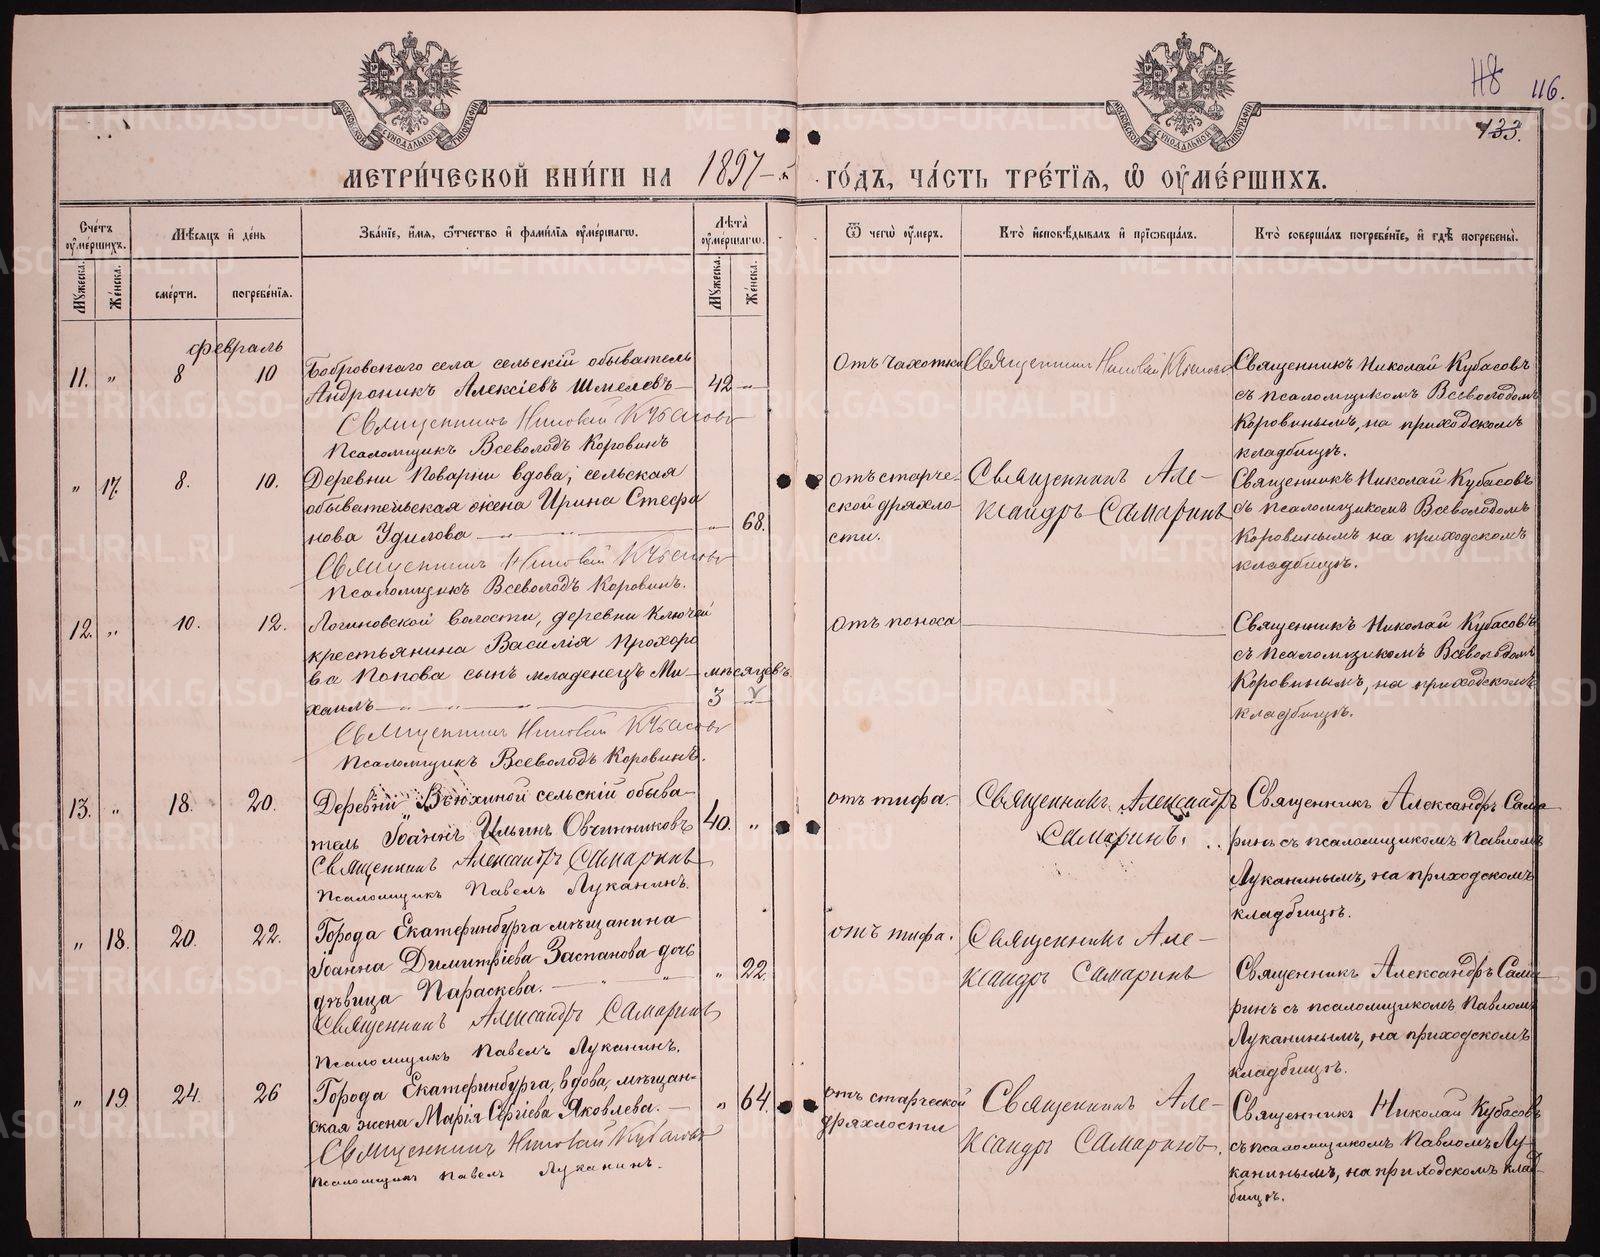 116.
133.
МОСКОВСКОЙ СУНОДАЛЬНОЙ ТИПОГРАФІИ
МОСКОВСКОЙ СУНОДАЛЬНОЙ ТИПОГРАФІИ
МЕТРИ́ЧЕСКОЙ КНИ́ГИ НА 1897-й ГО́ДЪ, ЧА́СТЬ ТРЕ́ТІЯ, Ѡ ОУМЕ́РШИХЪ.
Сче́тъ оумершихъ.
Му́жеска.
Же́нска.
Мѣсяцъ и де́нь
сме́рти.
погребе́нія.
Зва́ніе, и́мя, о́тчество и фами́лія оуме́ршагѡ.
Лѣта̀ оуме́ршагѡ.
Му́жеска.
Же́нска.
Ѿ чегѡ̀ оу́меръ.
Кто̀ исповѣ́дывалъ и пріѡбща́лъ.
Кто̀ соверша́лъ погребе́ніе, и гдѣ̀ погребены̀.
февраль
11. „ 8 10
Бобровскаго села сельскій обыватель
Андроникъ Алексіевъ Шмелевъ— 42 —„—
Священникъ Николай Кубасовъ
Псаломщикъ Всеволодъ Коровинъ
Отъ чахотки
Священникъ Николай Кубасовъ
Священникъ Николай Кубасовъ
съ псаломщикомъ Всеволодомъ
Коровинымъ, на приходскомъ
кладбищѣ.
„ 17. 8. 10.
Деревни Поварни вдова, сельская
обывательская жена Ирина Стефа
нова Удилова — „ — 68.
Священникъ Николай Кубасовъ
Псаломщикъ Всеволодъ Коровинъ.
отъ старче-
ской дряхло-
сти.
Священникъ Але-
ксандръ Самаринъ
Священникъ Николай Кубасовъ
съ псаломщикомъ Всеволодомъ
Коровинымъ на приходскомъ
кладбищѣ.
12. „ 10. 12.
Логиновской волости, деревни Ключей
крестьянина Василія Прохоро
ва Попова сынъ младенецъ Ми- мѣсяцевъ
хаилъ — „ — „ — 3
Священникъ Николай Кубасовъ
Псаломщикъ Всеволодъ Коровинъ.
Отъ поноса
Священникъ Николай Кубасовъ
съ псаломщикомъ Всеволодомъ
Коровинымъ, на приходскомъ
кладбищѣ.
13. „ 18. 20.
Деревни Вьюхиной сельскій обыва-
тель Іоаннъ Ильинъ Овчинниковъ 40. „
Священникъ Александръ Самаринъ
Псаломщикъ Павелъ Луканинъ.
отъ тифа.
Священникъ Александръ
Самаринъ.
Священникъ Александръ Сама-
ринъ съ псаломщикомъ Павломъ
Луканинымъ, на приходскомъ
кладбищѣ.
„ 18. 20. 22.
Города Екатеринбурга мѣщанина
Іоанна Димитріева Заспанова дочь
дѣвица Параскева. — „ — „ — „ 22.
Священникъ Александръ Самаринъ
Псаломщикъ Павелъ Луканинъ.
отъ тифа.
Священникъ Але-
ксандръ Самаринъ
Священникъ Александръ Сама-
ринъ съ псаломщикомъ Павломъ
Луканинымъ, на приходскомъ
кладбищѣ.
„ 19. 24. 26
Города Екатеринбурга, вдова, мѣщан-
ская жена Марія Сергіева Яковлева. — „ 64.
Священникъ Николай Кубасовъ
Псаломщикъ Павелъ Луканинъ.
отъ старческой
дряхлости
Священникъ Але-
ксандръ Самаринъ.
Священникъ Николай Кубасовъ
съ псаломщикомъ Павломъ Лу-
канинымъ, на приходскомъ клад-
бищѣ.
METRIKI.GASO-URAL.RU